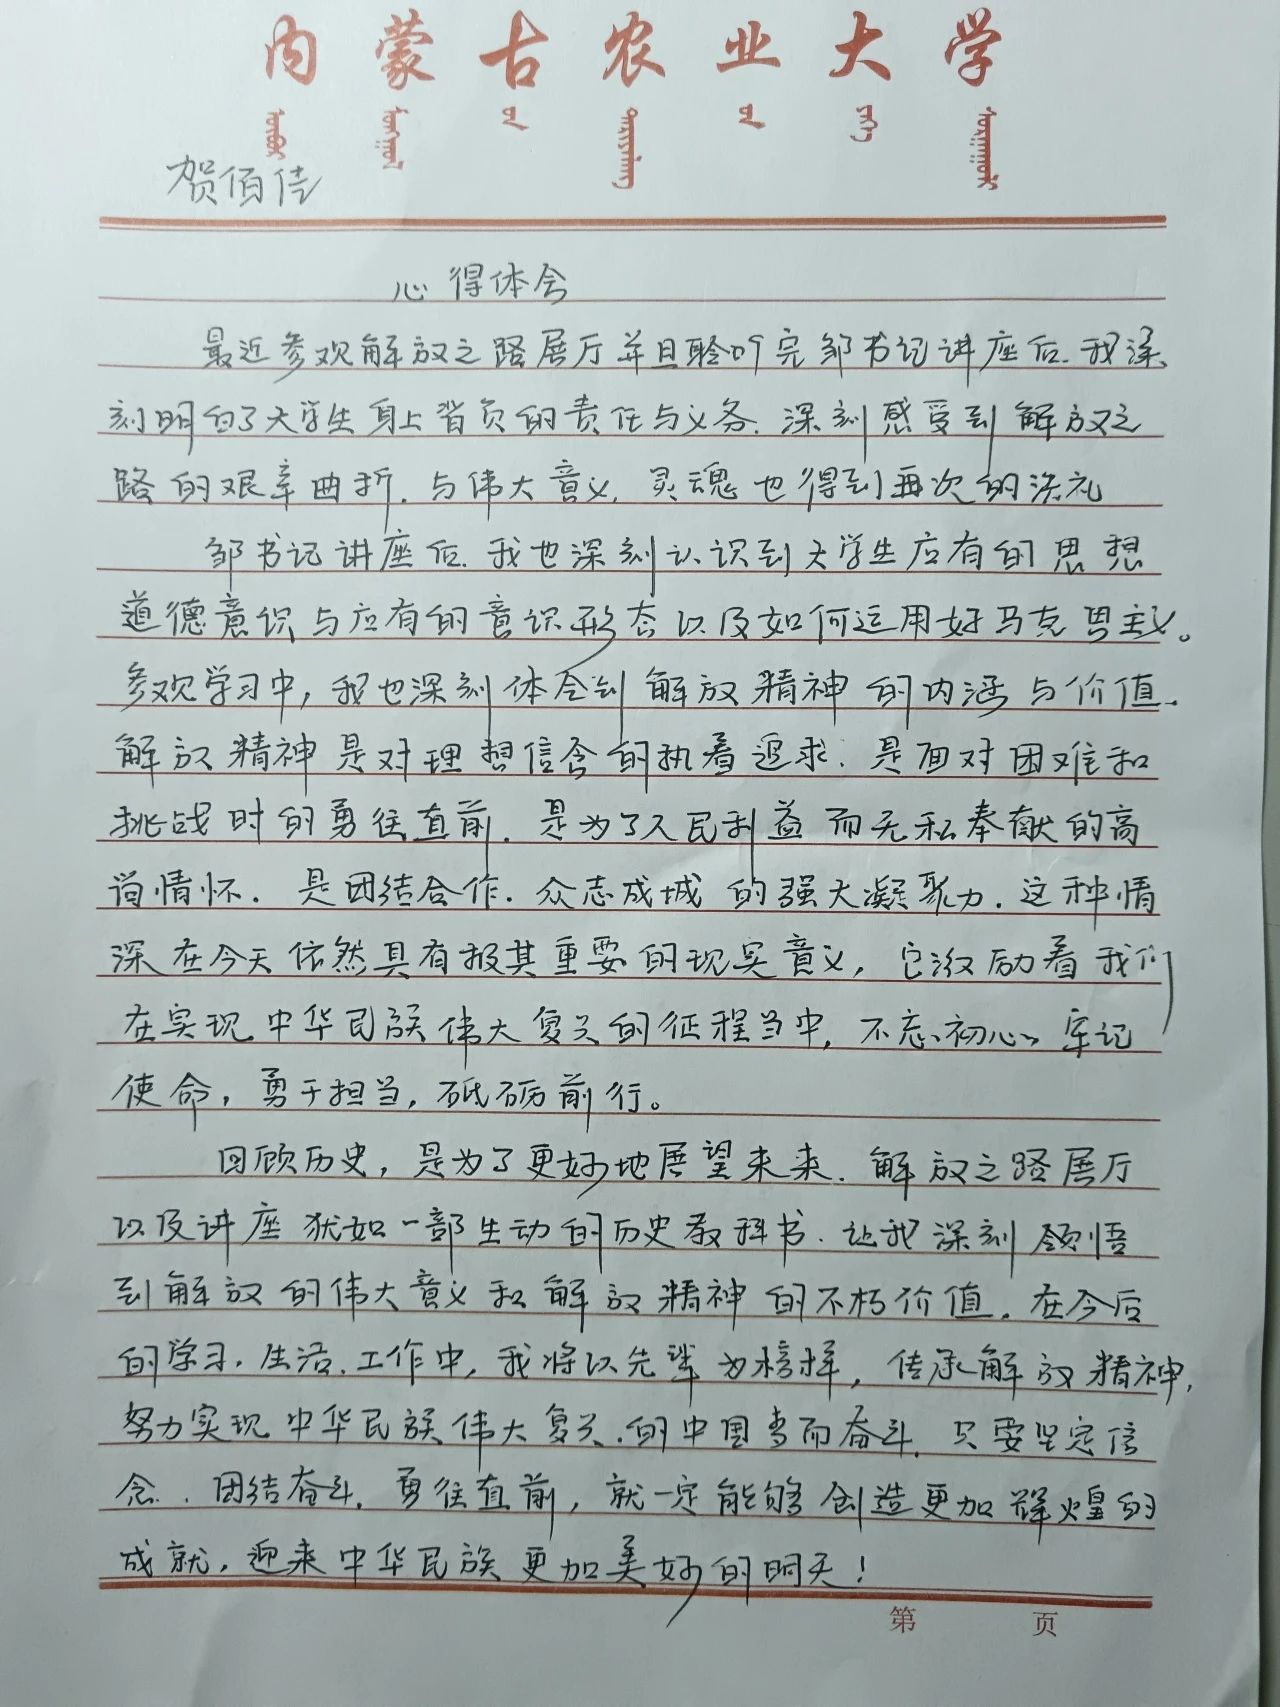 内蒙古农业大学
贺佰佳
心得体会
最近参观解放之路展厅并且聆听完邹书记讲座后.我深
刻明白了大学生身上背负的责任与义务.深刻感受到解放之
路的艰辛曲折.与伟大意义,灵魂也得到再次的洗礼
邹书记讲座后.我也深刻认识到大学生应有的思想
道德意识与应有的意识形态以及如何运用好马克思主义。
参观学习中,我也深刻体会到解放精神的内涵与价值.
解放精神是对理想信念的执着追求.是面对困难和
挑战时的勇往直前.是为了人民利益而无私奉献的高
尚情怀.是团结合作.众志成城的强大凝聚力.这种情
深在今天依然具有极其重要的现实意义,它激励着我们
在实现中华民族伟大复兴的征程当中,不忘初心、牢记
使命,勇于担当,砥砺前行。
回顾历史,是为了更好地展望未来.解放之路展厅
以及讲座犹如一部生动的历史教科书.让我深刻领悟
到解放的伟大意义和解放精神的不朽价值.在今后
的学习.生活.工作中,我将以先辈为榜样,传承解放精神,
努力实现中华民族伟大复兴.的中国梦而奋斗.只要坚定信
念.团结奋斗.勇往直前,就一定能够创造更加辉煌的
成就,迎来中华民族更加美好的明天!
第 页